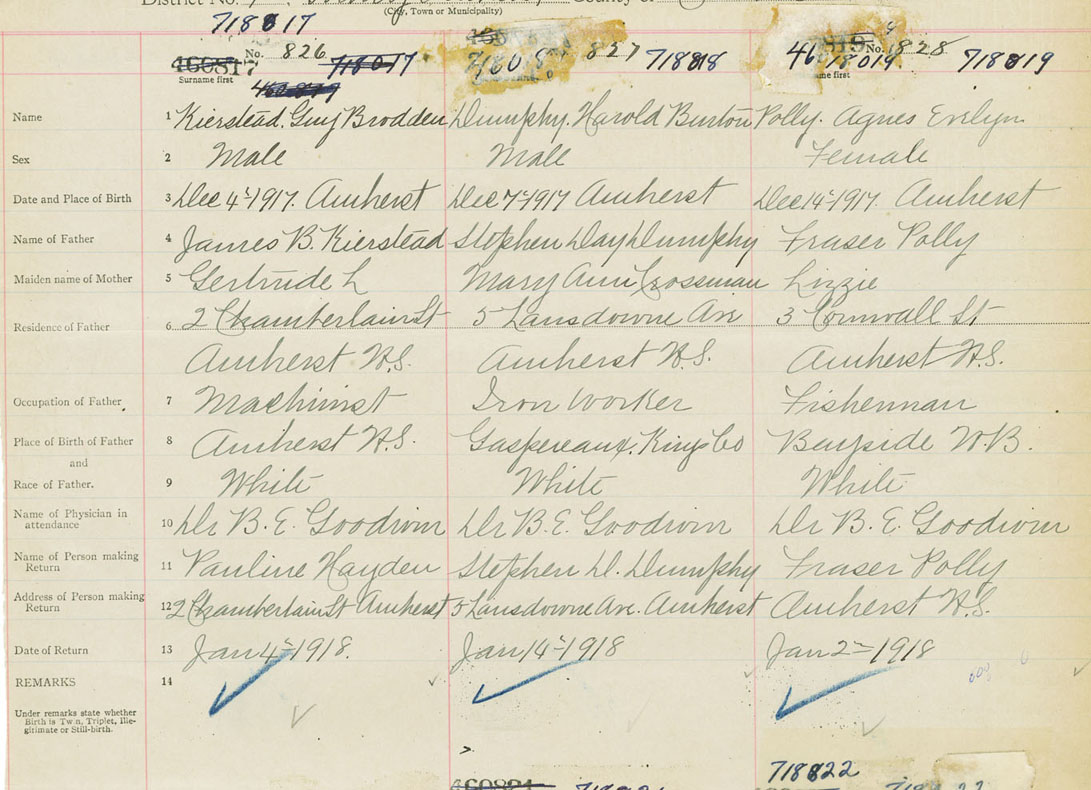 District No.
(City, Town or Municipality)
County of
718817
160817 No. 826 718017
Surname first
827 718818
No. 828 718819
Name 1 Kierstead. Guy Brodden Dumphy. Harold Burton Polly. Agnes Evelyn
Sex 2 Male Male Female
Date and Place of Birth 3 Dec 4-1917. Amherst Dec 7-1917 Amherst Dec 14-1917 Amherst
Name of Father 4 James B. Kierstead Stephen Day Dumphy Fraser Polly
Maiden name of Mother 5 Gertrude L Mary Ann Crossman Lizzie
Residence of Father 6 2 Chamberlain St 5 Lansdowne Ave 3 Cornwall St
Amherst N.S. Amherst N.S. Amherst N.S.
Occupation of Father 7 Machinist Iron Worker Fisherman
Place of Birth of Father 8 Amherst N.S. Gaspereaux. Kings Co Bayside N.B.
and
Race of Father. 9 White White White
Name of Physician in attendance 10 Dr B. E. Goodwin Dr B. E. Goodwin Dr B. E. Goodwin
Name of Person making Return 11 Pauline Hayden Stephen D. Dumphy Fraser Polly
Address of Person making Return 12 2 Chamberlain St Amherst 5 Lansdowne Ave. Amherst Amherst N.S.
Date of Return 13 Jan 4-1918. Jan 14-1918 Jan 2-1918
REMARKS 14
Under remarks state whether
Birth is Twin, Triplet, Ille-
gitimate or Still-birth.
718822
160821